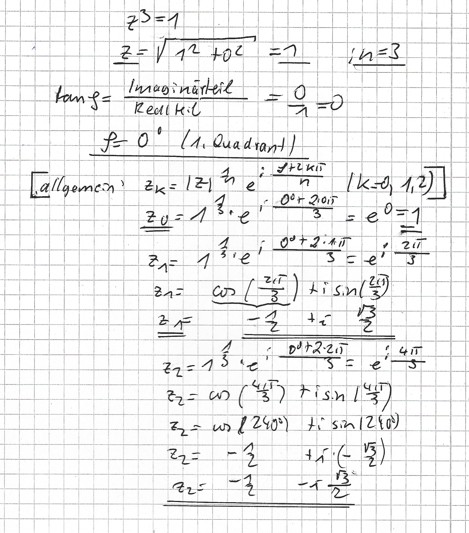 z³=1
z = √(1² + 0²) = 1 ; n = 3
tan φ = Imaginärteil / Realteil = 0/1 = 0
φ = 0° (1. Quadrant)
[allgemein: z_k = |z|^(1/n) e^(i (φ+2kπ)/n) (k=0, 1, 2)]
z_0 = 1^(1/3) · e^(i (0°+2·0π)/3) = e^0 = 1
z_1 = 1^(1/3) · e^(i (0°+2·1π)/3) = e^(i 2π/3)
z_1 = cos(2π/3) + i sin(2π/3)
z_1 = -1/2 + i √3/2
z_2 = 1^(1/3) · e^(i (0°+2·2π)/3) = e^(i 4π/3)
z_2 = cos(4π/3) + i sin(4π/3)
z_2 = cos(240°) + i sin(240°)
z_2 = -1/2 + i·(-√3/2)
z_2 = -1/2 - i √3/2